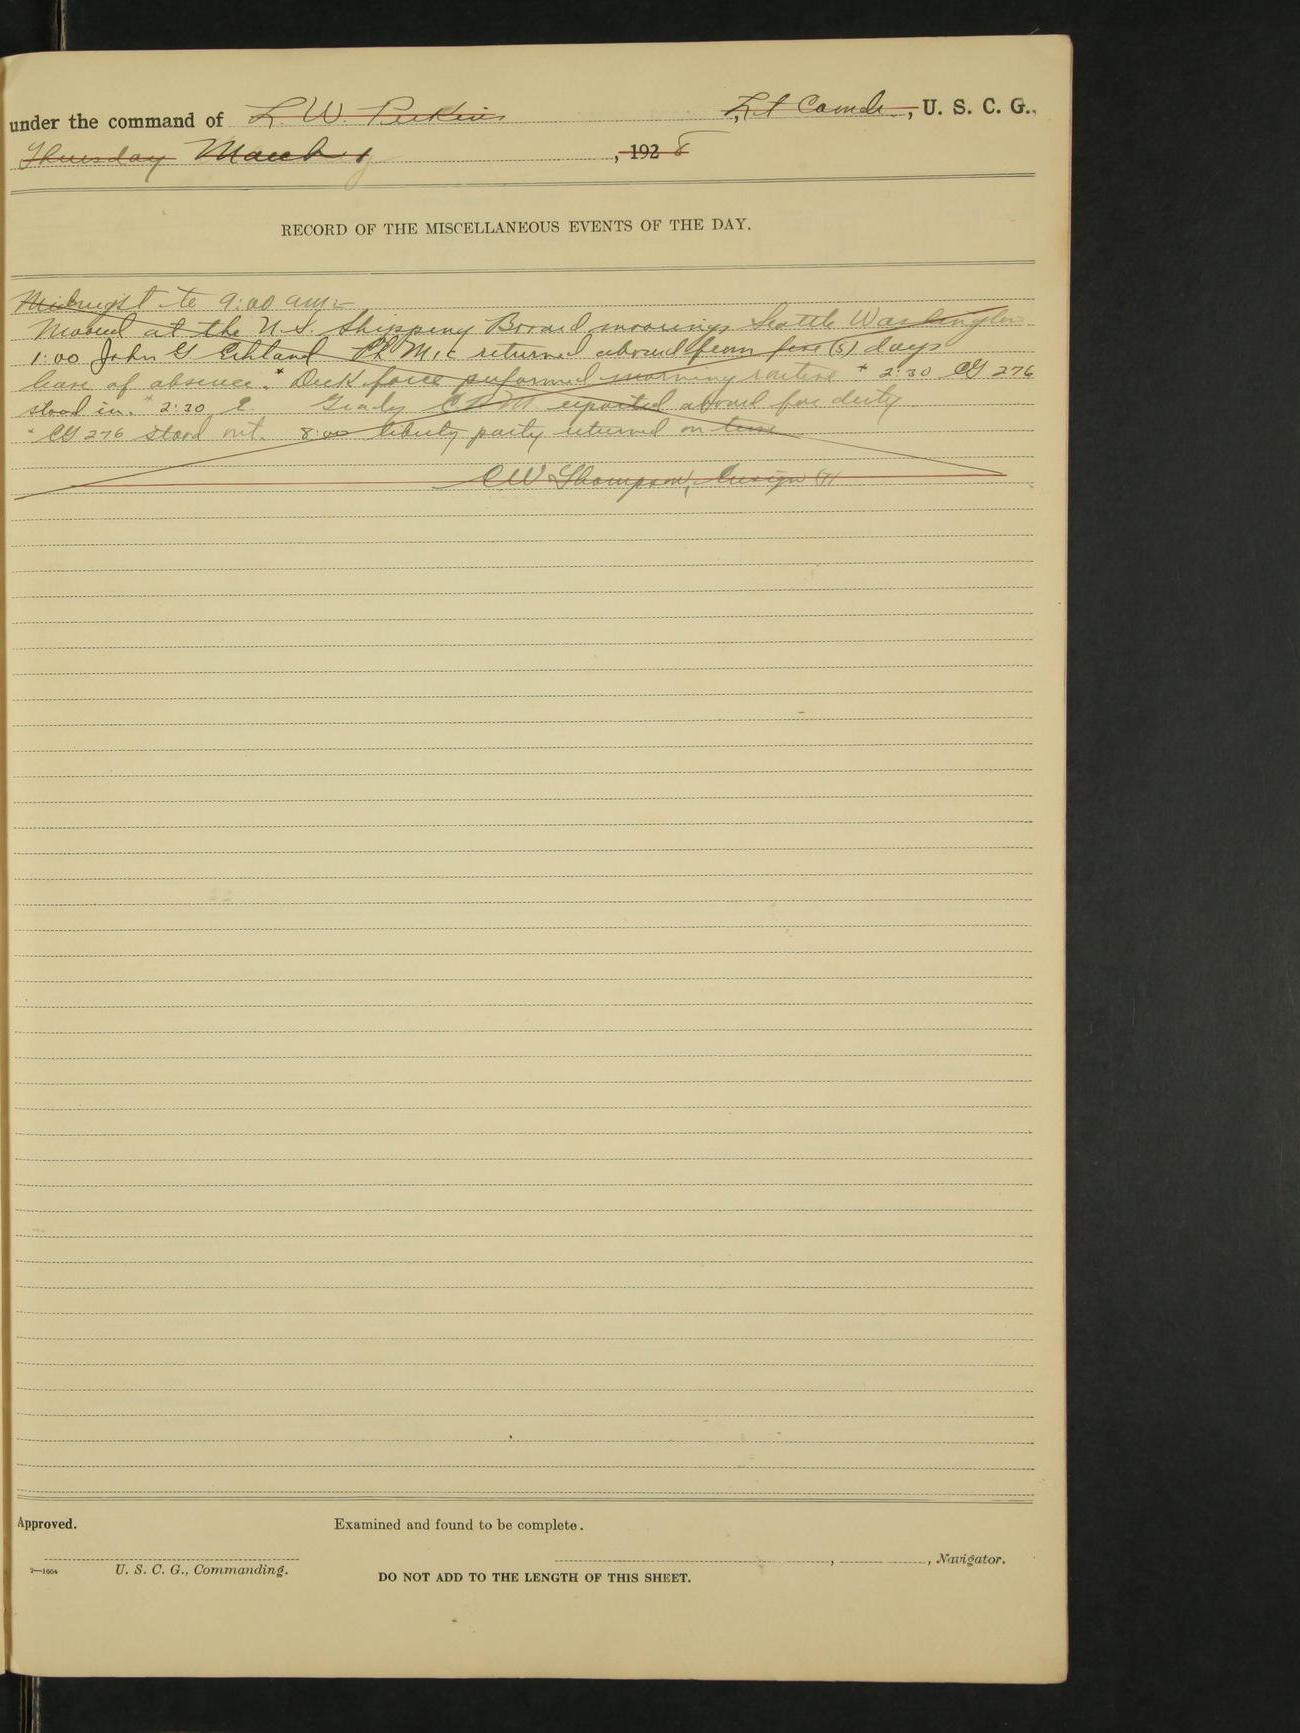 under the command of L. W. Perkins, Lt Comdr, U. S. C. G.,
Thursday March 1, 1928
RECORD OF THE MISCELLANEOUS EVENTS OF THE DAY.
Midnight to 9:00 am:-
Moored at the U.S. Shipping Board moorings Seattle Washington
1:00 John G Ehland M.1c returned aboard from five (5) days
leave of absence. * Deck force performed morning routine * 2:30 CG 276
stood in. * 2:30, E. Grady reported aboard for duty
* CG 276 stood out. 8:00 liberty party returned on time
C W Thompson, Ensign (T)
Approved.
Examined and found to be complete.
, , Navigator.
2—1664
U. S. C. G., Commanding.
DO NOT ADD TO THE LENGTH OF THIS SHEET.